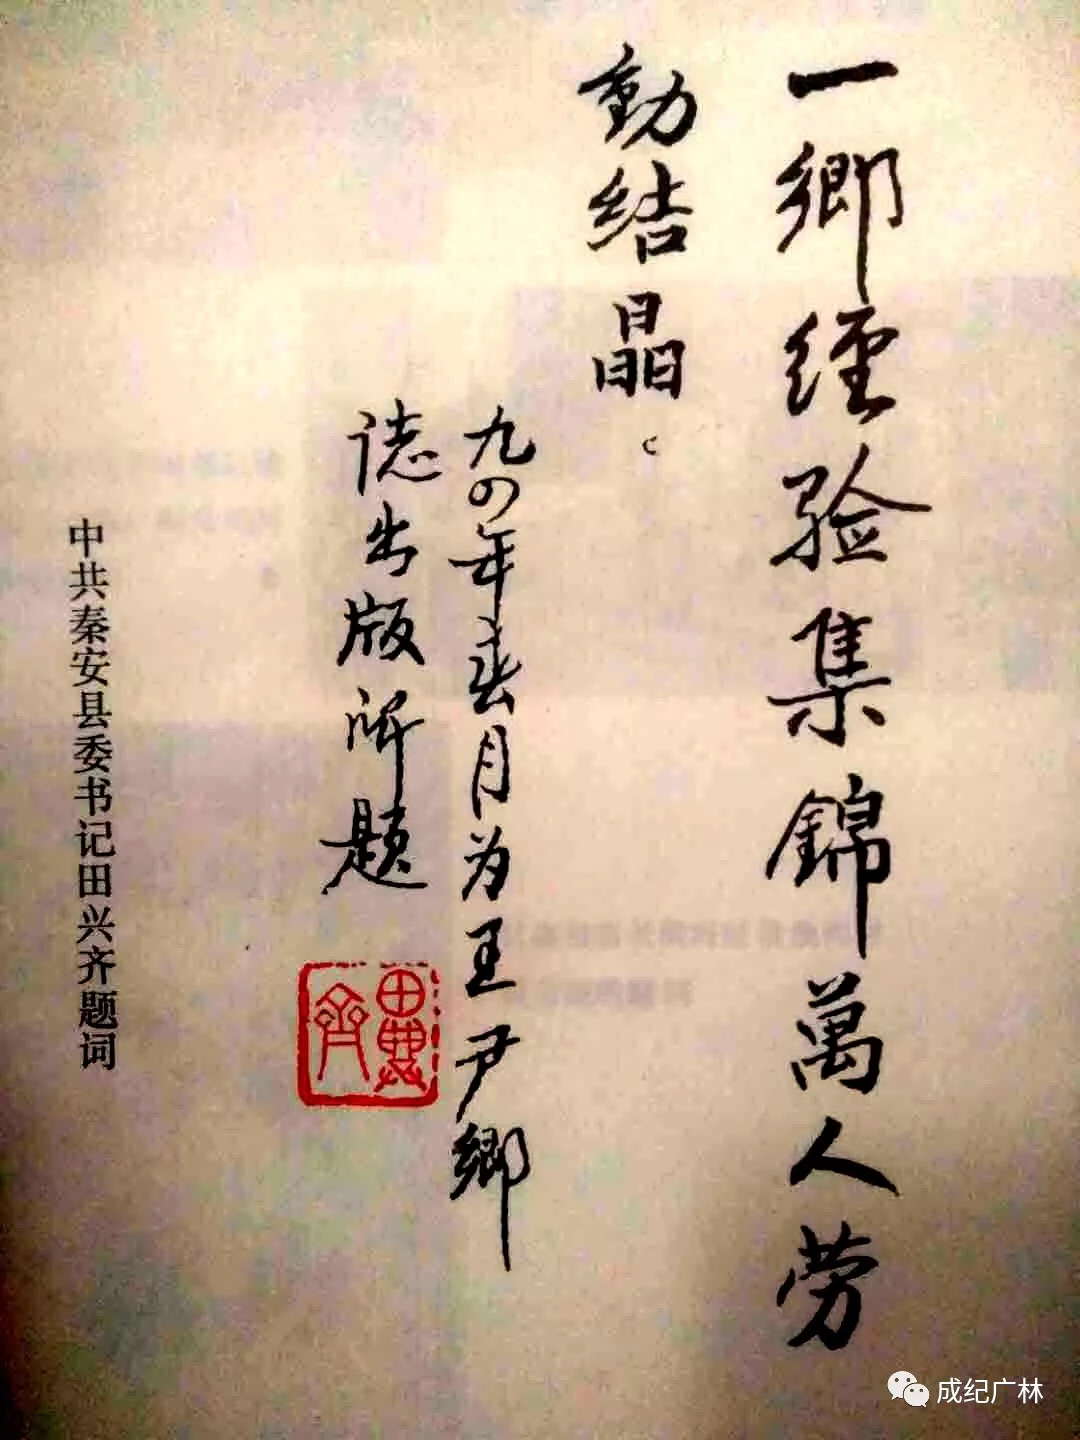 一鄉經验集錦萬人劳
動结晶。
九四年春月为王尹鄉
誌出版所题
田興齊
中共秦安县委书记田兴齐题词
成纪广林